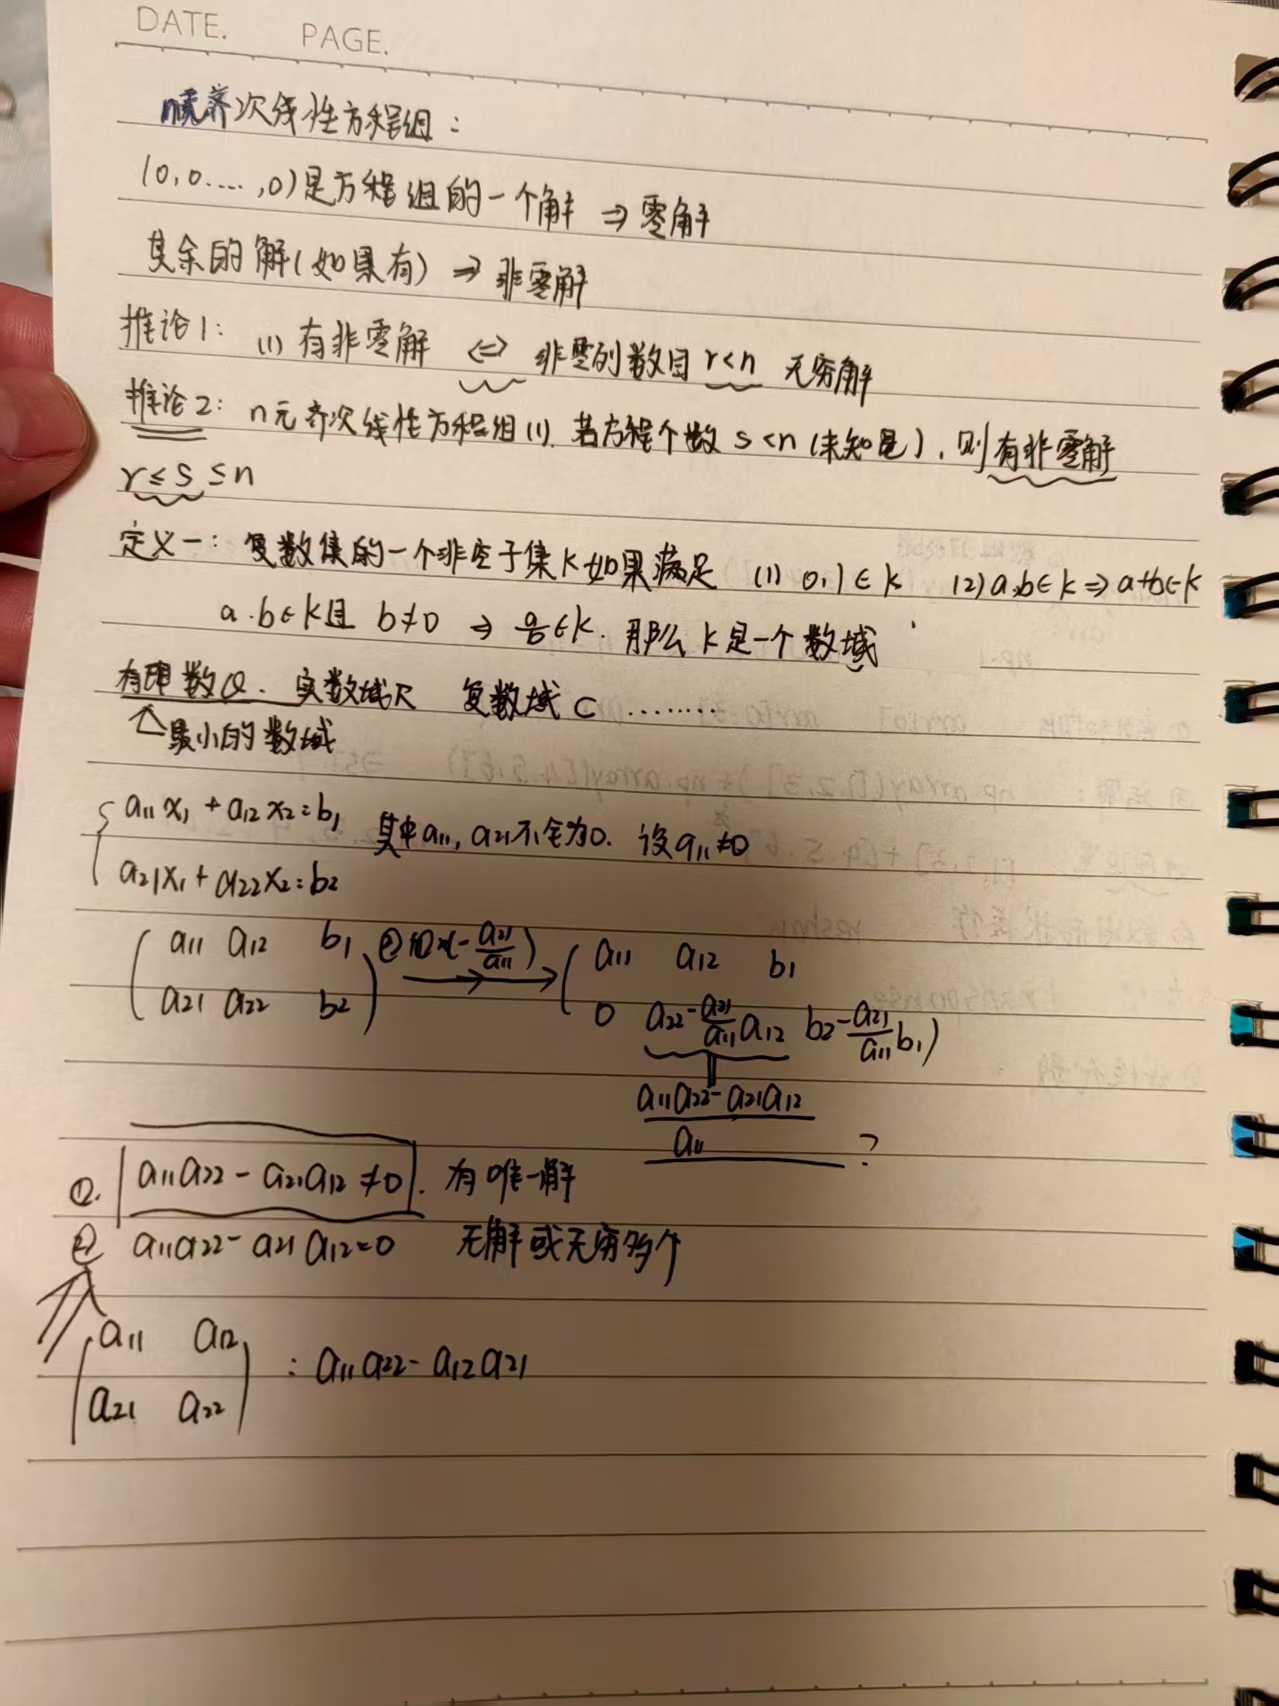 DATE. PAGE.
n元齐次线性方程组:
(0,0....,0)是方程组的一个解 ⇒ 零解
其余的解(如果有) ⇒ 非零解
推论1: (1) 有非零解 ⇔ 非零列数目 r<n 无穷解
推论2: n元齐次线性方程组(1). 若方程个数 s<n (未知量), 则有非零解
r≤s≤n
定义一: 复数集的一个非空子集K如果满足 (1) 0,1∈k (2) a,b∈k⇒a+b∈k
a.b∈k且 b≠0 ⇒ a/b∈k. 那么 k是一个数域
有理数Q. 实数域R 复数域C ........
最小的数域
a11x1+a12x2=b1 其中a11, a21不全为0. 设a11≠0
a21x1+a22x2=b2
( a11 a12 b1 ②+①×(-a21/a11) → ( a11 a12 b1
a21 a22 b2 ) 0 a22-a21/a11 a12 b2-a21/a11 b1 )
a11a22-a21a12
a11 ?
①. a11a22-a21a12≠0. 有唯一解
② a11a22-a21a12=0 无解或无穷多个
| a11 a12
a21 a22 | : a11a22-a12a21